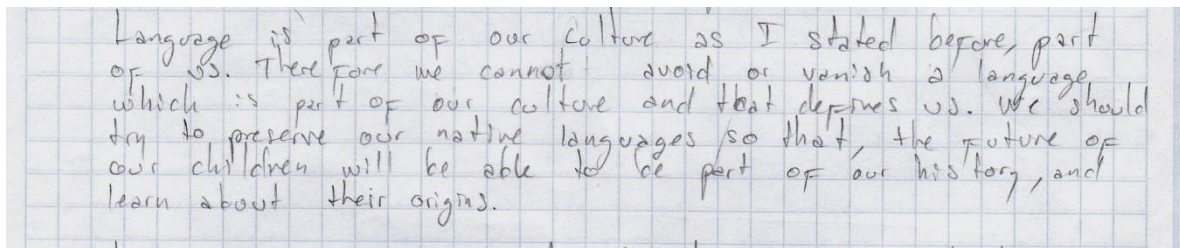 Language is part of our culture as I stated before, part
of us. Therefore we cannot avoid or vanish a language
which is part of our culture and that defines us. We should
try to preserve our native languages so that, the future of
our children will be able to be part of our history, and
learn about their origins.